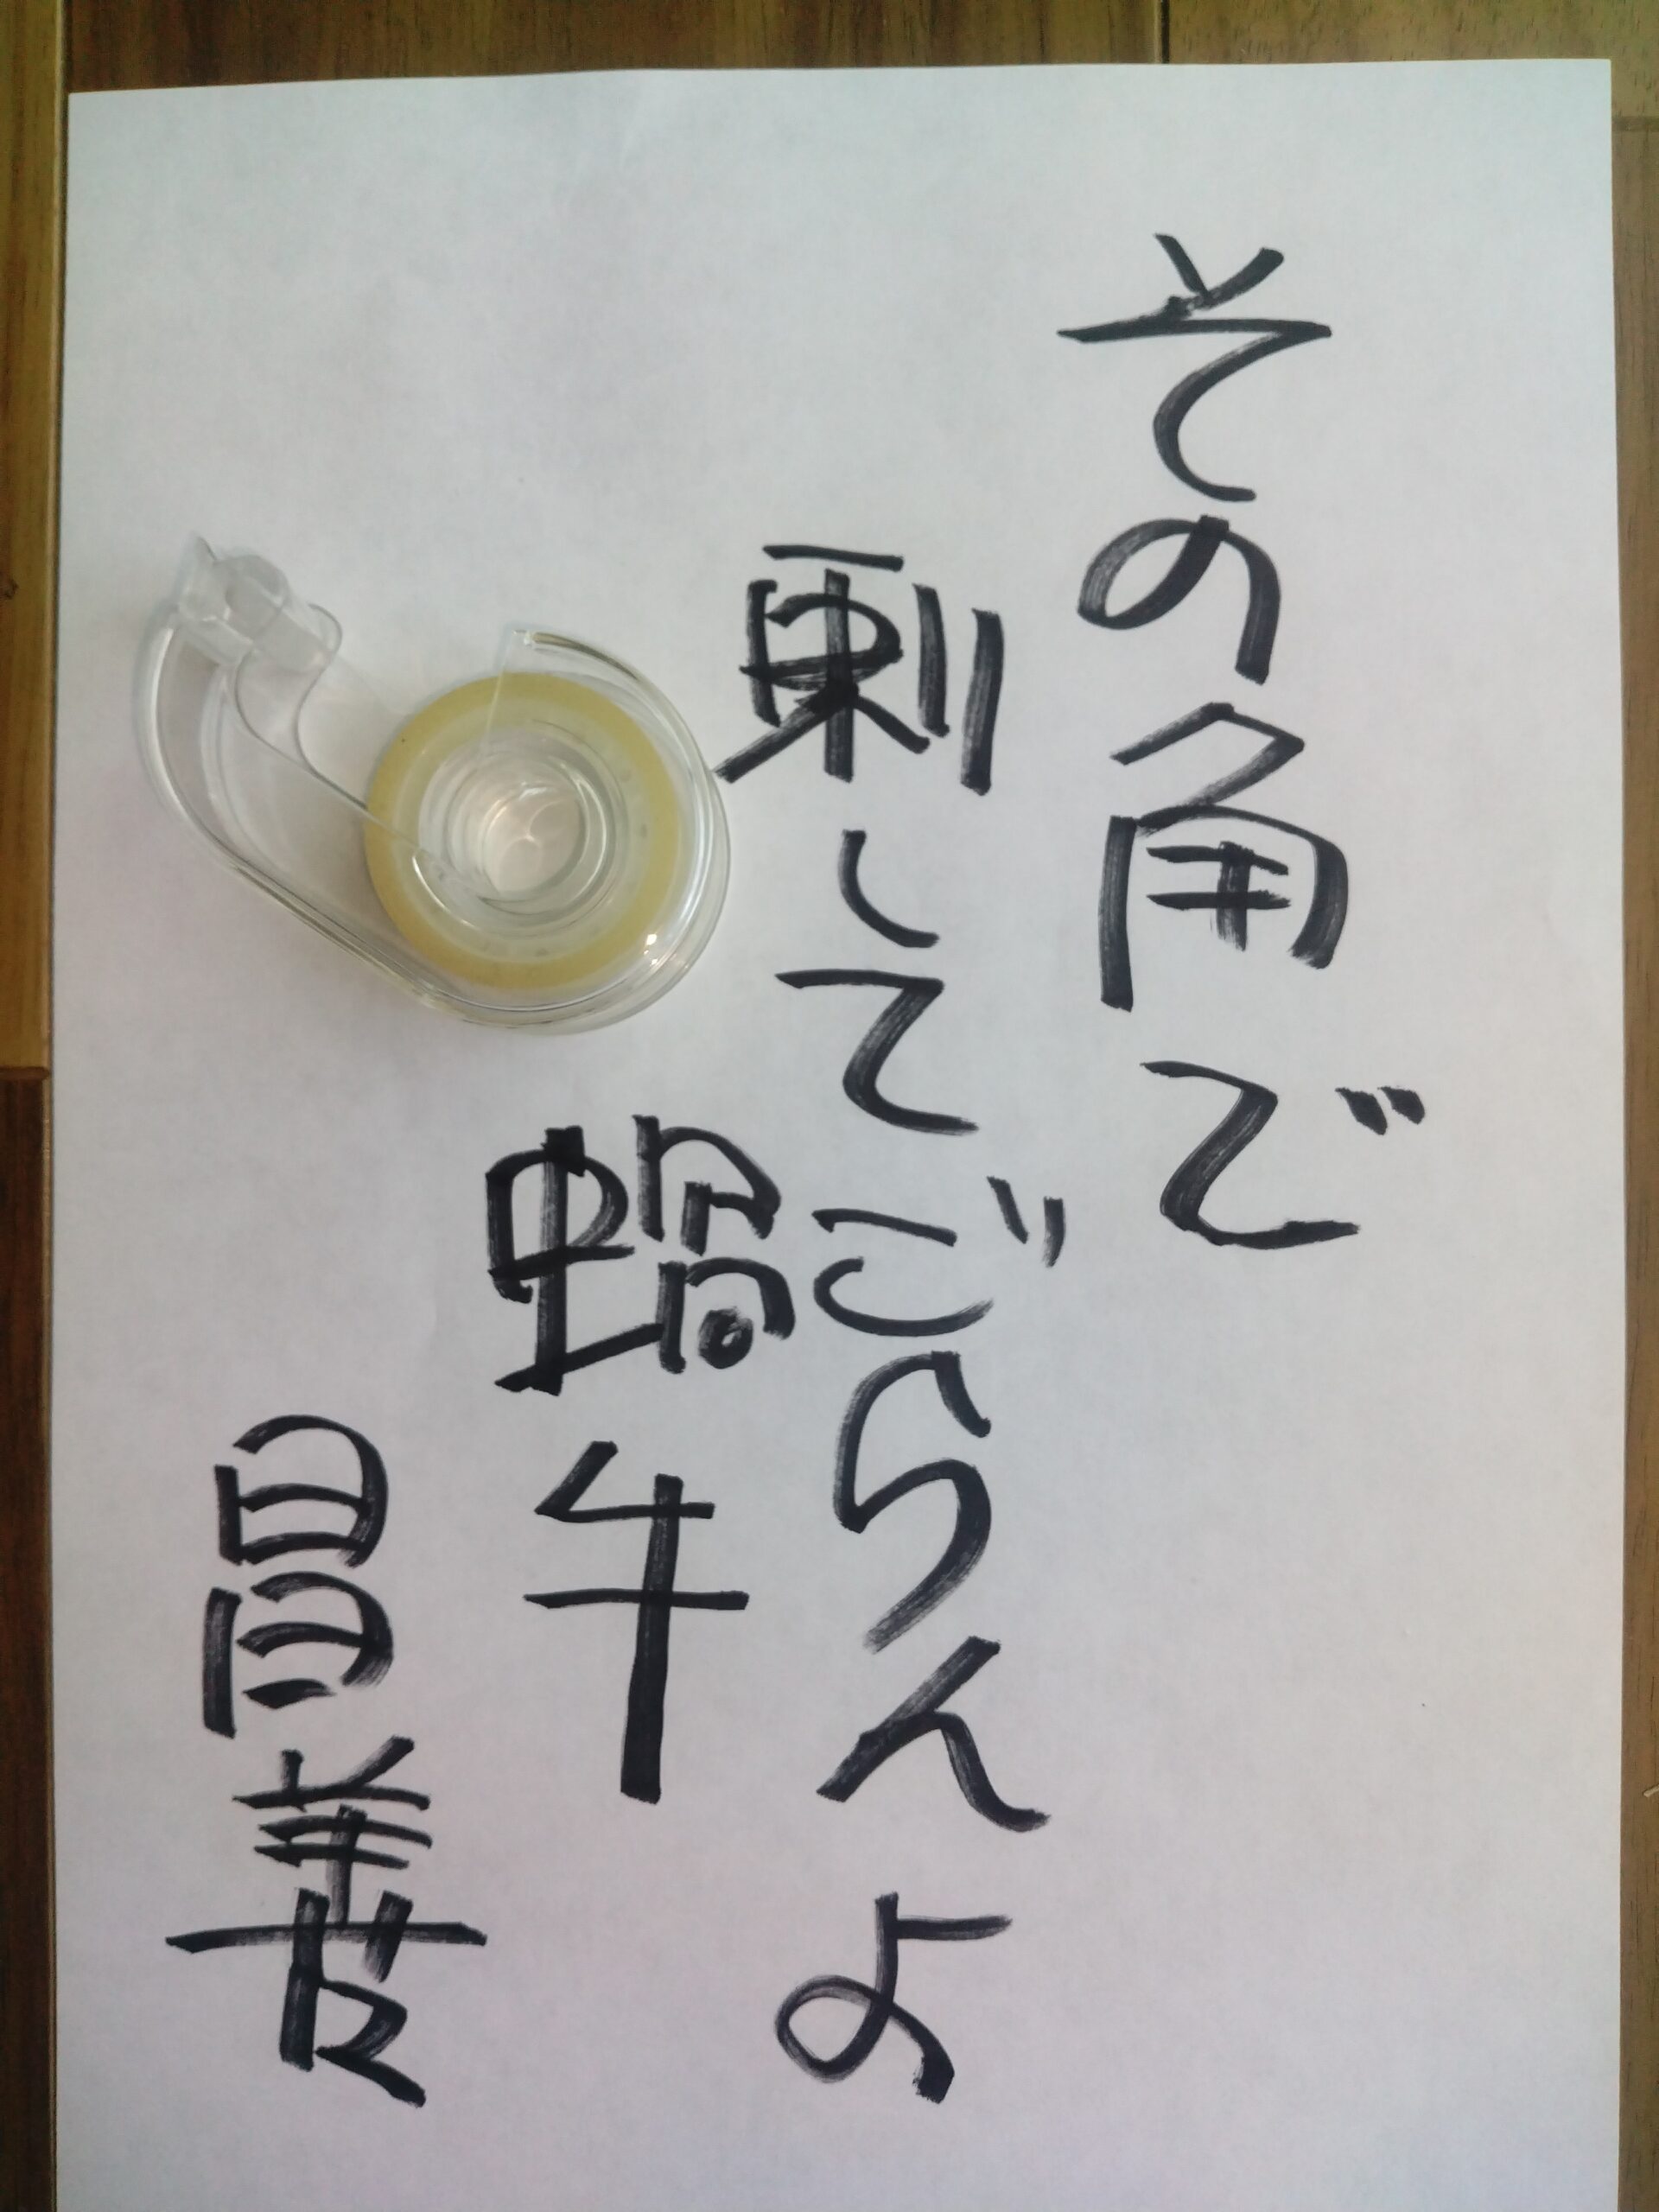 その角で
刺してごらんよ
蝸牛
昌善